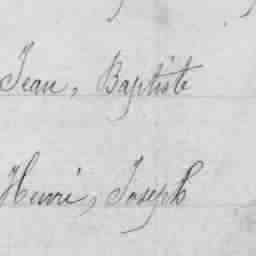 Jean, Baptiste
Henri, Joseph